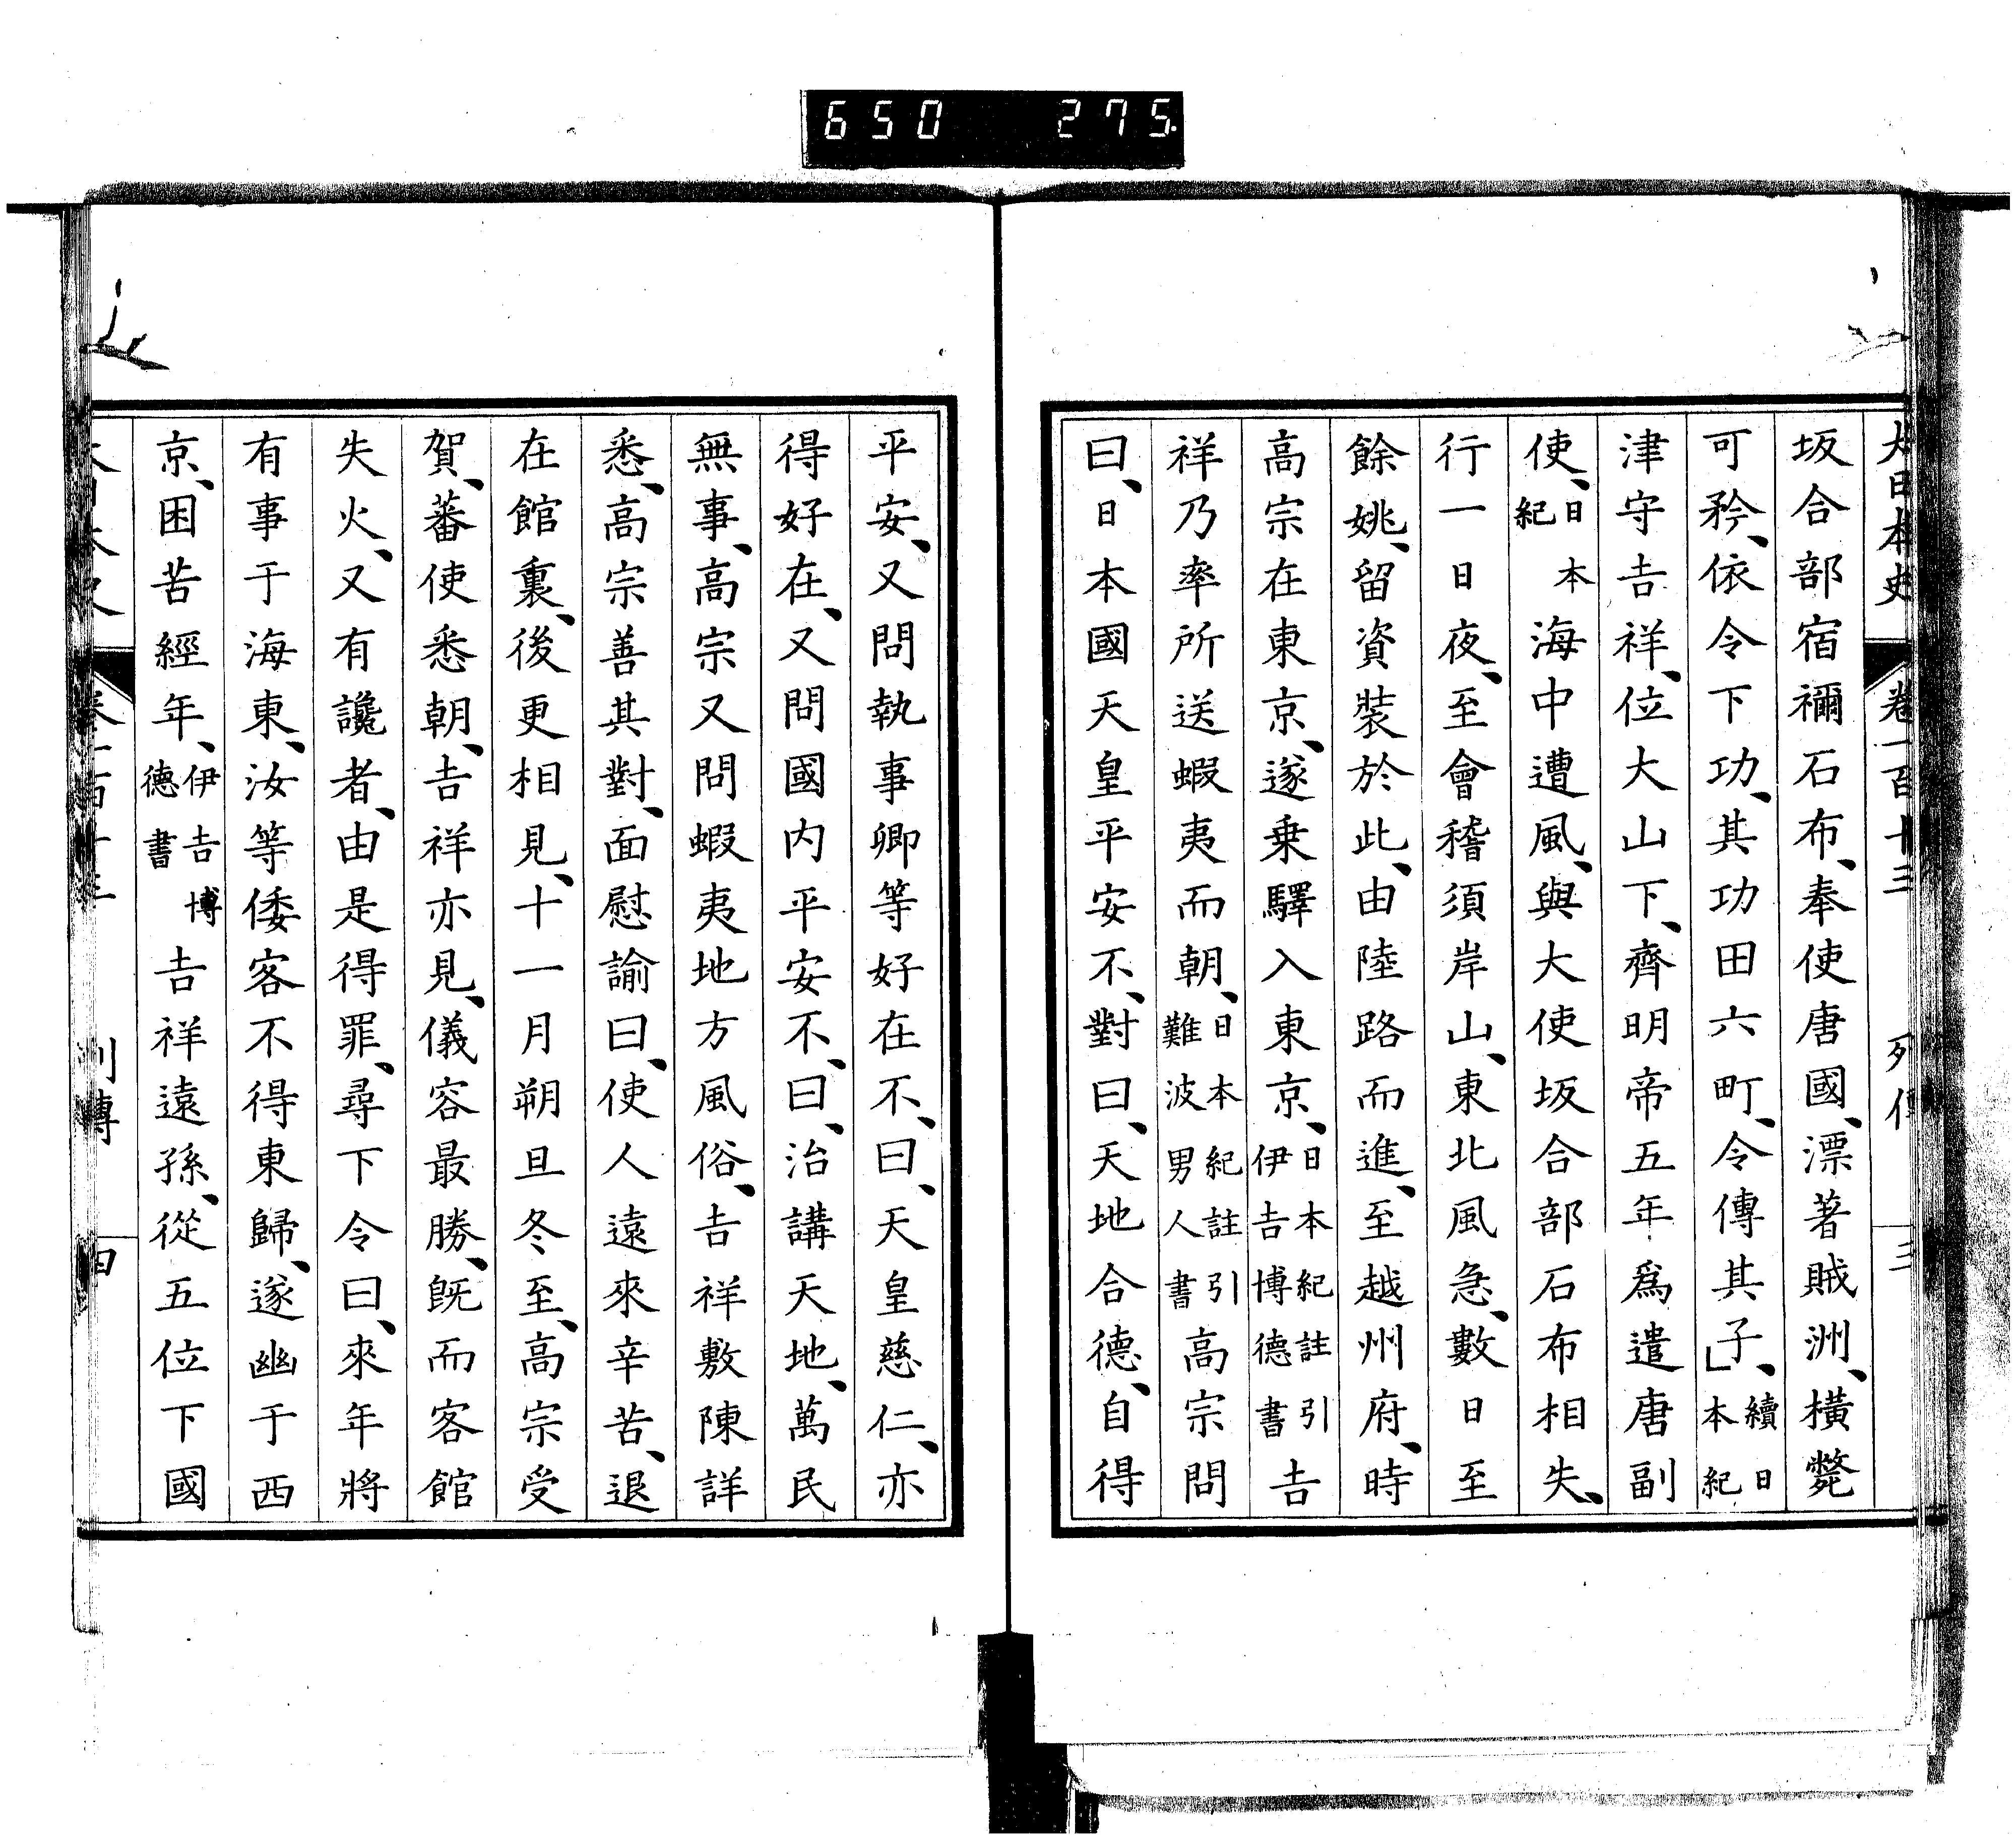 650 275.
大日本史 卷一百十三 列傳 三
坂合部宿禰石布、奉使唐國、漂著賊洲、橫斃
可矜、依令下功、其功田六町、令傳其子、」續日本紀
津守吉祥、位大山下、齊明帝五年爲遣唐副
使、日本紀海中遭風、與大使坂合部石布相失、
行一日夜、至會稽須岸山、東北風急、數日至
餘姚、留資裝於此、由陸路而進、至越州府、時
高宗在東京、遂乗驛入東京、日本紀註引伊吉博德書吉
祥乃率所送蝦夷而朝、日本紀註引難波男人書高宗問
曰、日本國天皇平安不、對曰、天地合德、自得
平安、又問執事卿等好在不、曰、天皇慈仁、亦
得好在、又問國內平安不、曰、治講天地、萬民
無事、高宗又問蝦夷地方風俗、吉祥敷陳詳
悉、高宗善其對、面慰諭曰、使人遠來辛苦、退
在館裏、後更相見、十一月朔旦冬至、高宗受
賀、蕃使悉朝、吉祥亦見、儀容最勝、旣而客館
失火、又有讒者、由是得罪、尋下令曰、來年將
有事于海東、汝等倭客不得東歸、遂幽于西
京、困苦經年、伊吉博德書吉祥遠孫、從五位下國
列傳 四